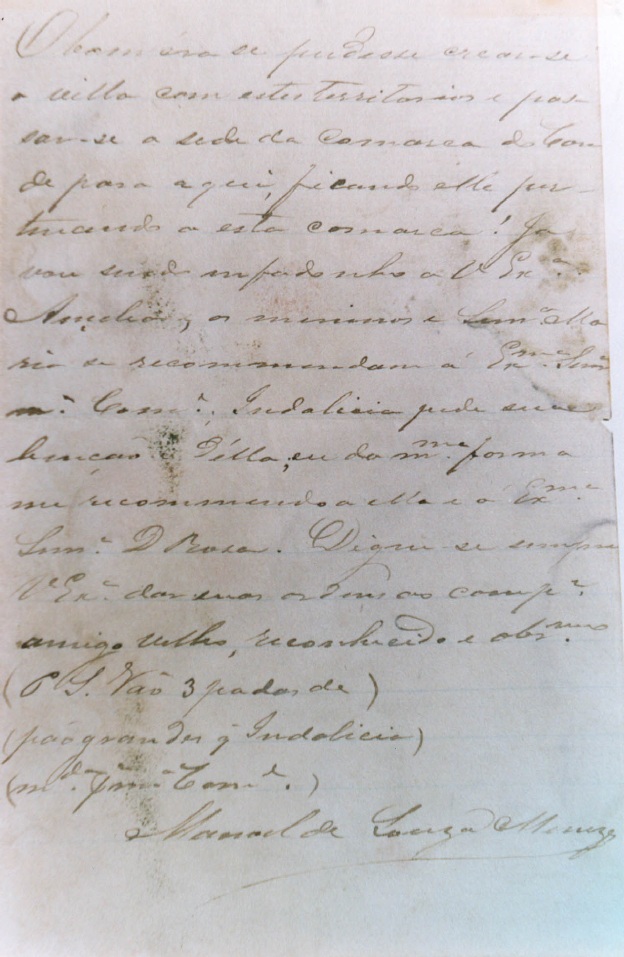 O bom éra se pudesse crear-se
a villa com estes territorios e pas-
sar-se a sede da comarca do Con
de para aqui, ficando elle per-
tencendo a esta comarca! Ja
vou sendo infadonho a Vª Exª.
Amelia, os meninos e Ma
ria se recommendam á Exma.
Indalicia pede sua
bençaõ. D'Ella, eu da mma. forma
me recommendo a ella e á Exma.
D Rosa. Digne-se sempre
Vª Exª. dar suas ordens ao compe.
amigo velho, reconhecido e obrmo.
(P S. Vaõ 3 de)
(paõ grandes q Indalicia)
(mda.)
Manoel de Souza Menezes